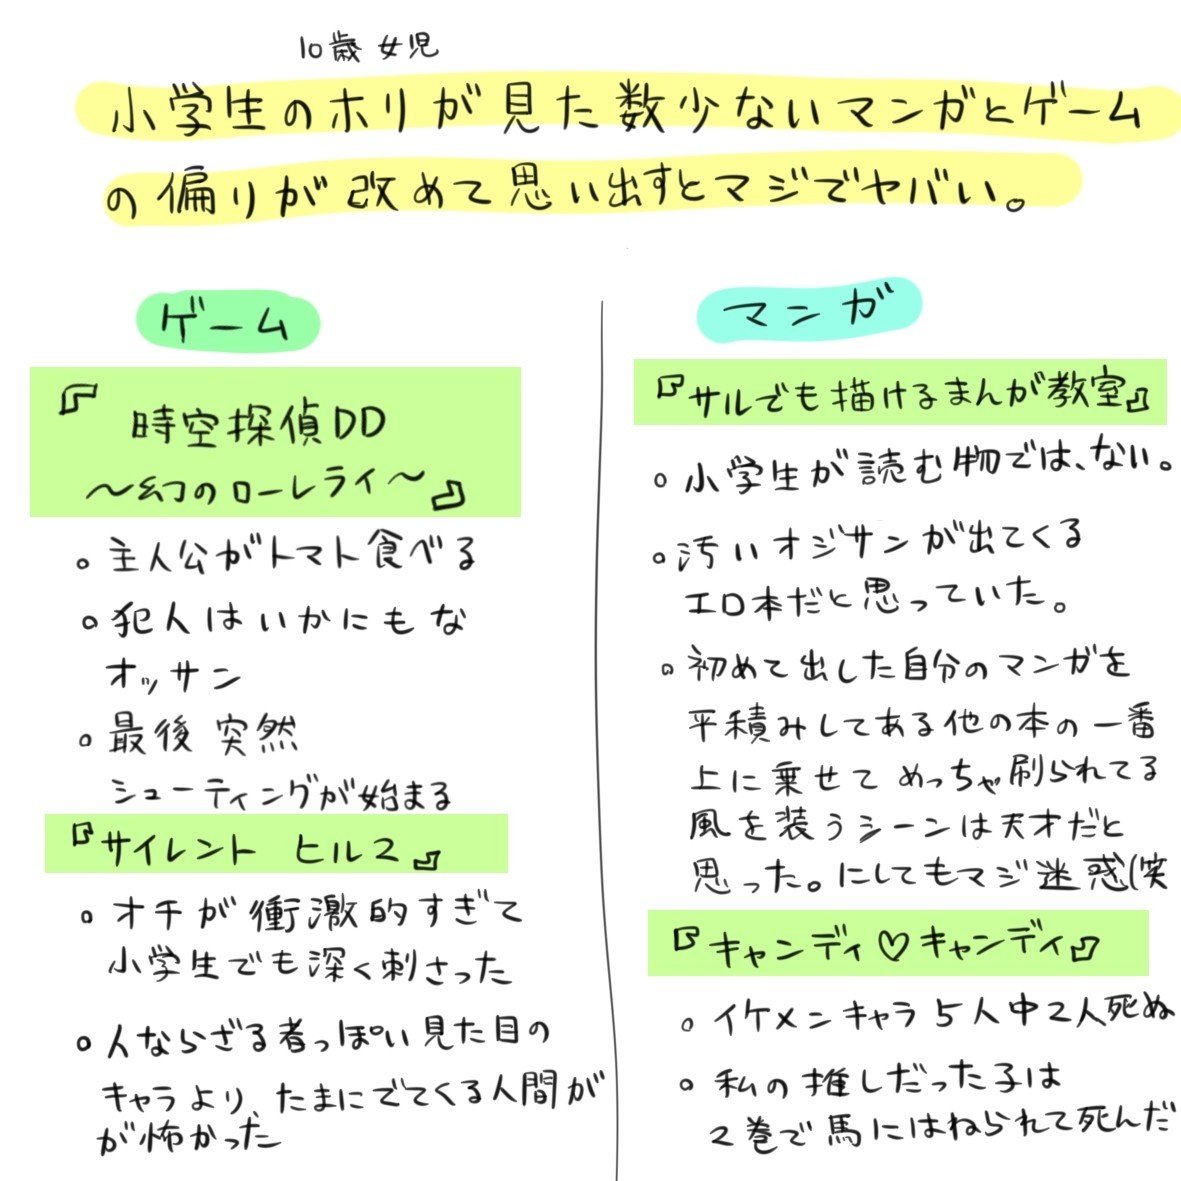 10歳 女児
小学生のホリが見た数少ないマンガとゲーム
の偏りが改めて思い出すとマジでヤバい。
ゲーム
『時空探偵DD
〜幻のローレライ〜』
。主人公がトマト食べる
。犯人はいかにもな
オッサン
。最後 突然
シューティングが始まる
『サイレント ヒル2』
。オチが衝激的すぎて
小学生でも深く刺さった
。人ならざる者っぽい見た目の
キャラより、たまにでてくる人間が
が怖かった
マンガ
『サルでも描けるまんが教室』
。小学生が読む物では、ない。
。汚いオジサンが出てくる
エロ本だと思っていた。
。初めて出した自分のマンガを
平積みしてある他の本の一番
上に乗せて めっちゃ刷られてる
風を装うシーンは天才だと
思った。にしてもマジ迷惑(笑
『キャンディ♡キャンディ』
。イケメンキャラ5人中2人死ぬ
。私の推しだった子は
2巻で馬にはねられて死んだ